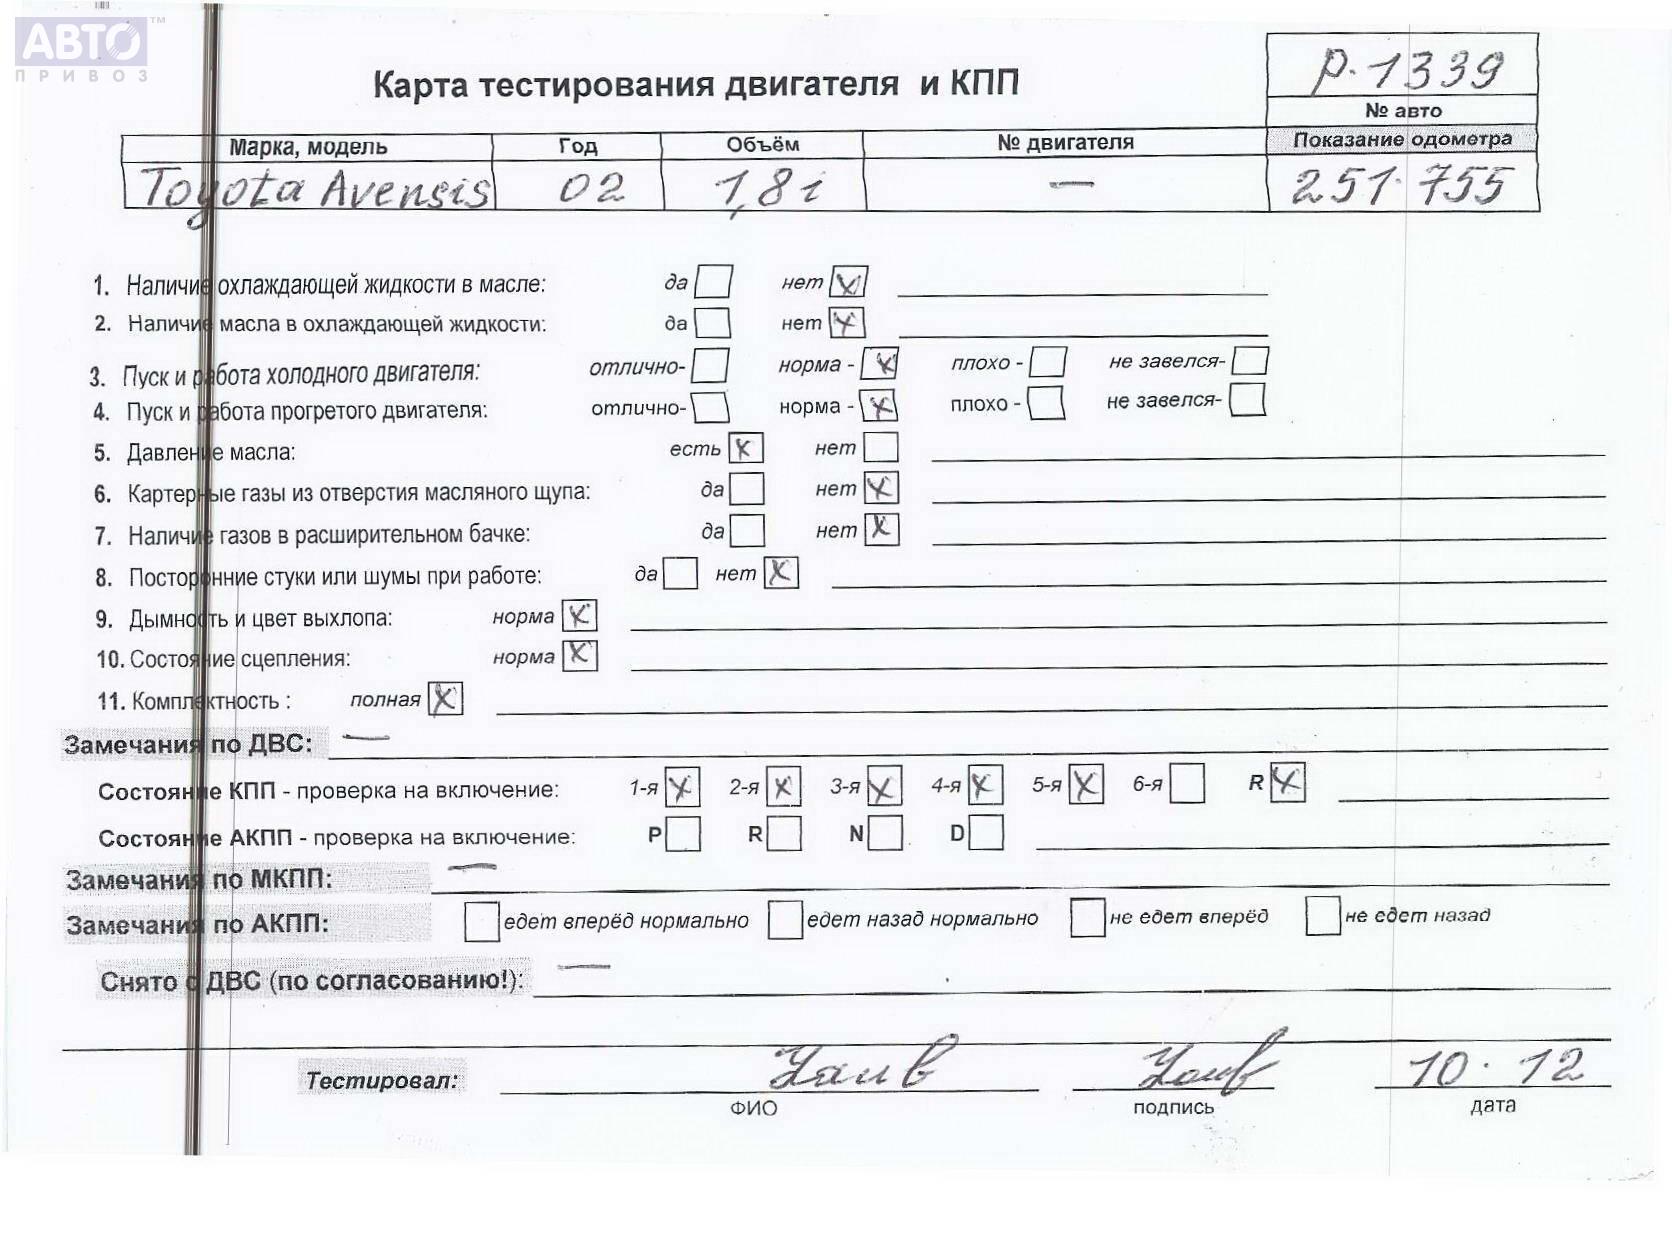 АВТО™
ПРИВОЗ
Карта тестирования двигателя и КПП
р.1339
№ авто
Марка, модель Год Объём № двигателя Показание одометра
Toyota Avensis 02 1,8i — 251.755
1. Наличие охлаждающей жидкости в масле: да нет x
2. Наличие масла в охлаждающей жидкости: да нет x
3. Пуск и работа холодного двигателя: отлично- норма - x плохо - не завелся-
4. Пуск и работа прогретого двигателя: отлично- норма - x плохо - не завелся-
5. Давление масла: есть x нет
6. Картерные газы из отверстия масляного щупа: да нет x
7. Наличие газов в расширительном бачке: да нет x
8. Посторонние стуки или шумы при работе: да нет x
9. Дымность и цвет выхлопа: норма x
10. Состояние сцепления: норма x
11. Комплектность : полная x
Замечания по ДВС: —
Состояние КПП - проверка на включение: 1-я x 2-я x 3-я x 4-я x 5-я x 6-я R x
Состояние АКПП - проверка на включение: P R N D
Замечания по МКПП: —
Замечания по АКПП: едет вперёд нормально едет назад нормально не едет вперёд не едет назад
Снято с ДВС (по согласованию!): —
Тестировал: 10.12
ФИО подпись дата